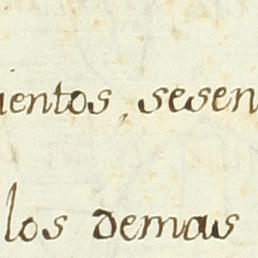 ientos, sesen
los demas